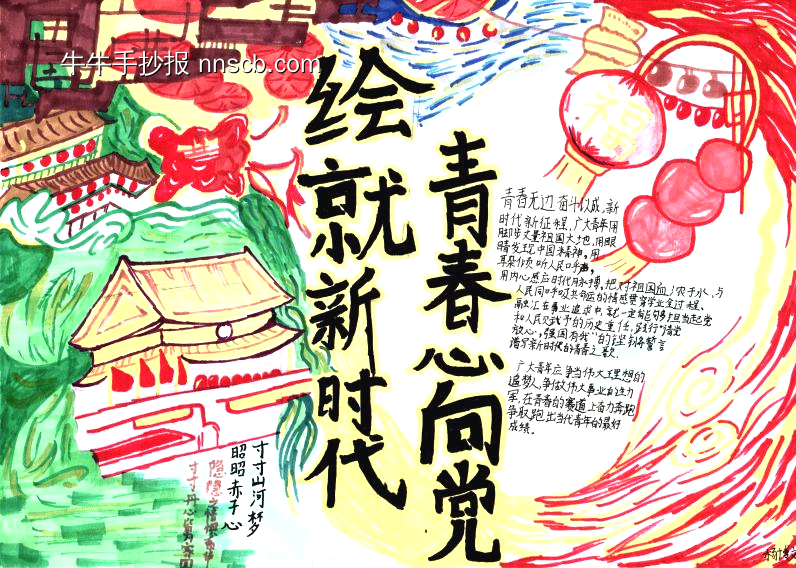 牛牛手抄报 nnscb.com
青春心向党
绘就新时代
青春无边 奋斗以成,新
时代新征程,广大青年用
脚步丈量祖国大地,用眼
睛发现中国精神,用
耳朵倾听人民呼声,
用内心感应时代脉搏,把对祖国血浓于水、与
人民同呼吸共命运的情感贯穿学业全过程、
融汇在事业追求中,就一定能够担当起党
和人民赋予的历史重任,践行“请党
放心,强国有我”的铿锵誓言
谱写新时代的青春之歌
广大青年应争当伟大理想的
追梦人,争做伟大事业的生力
军,在青春的赛道上奋力奔跑
争取跑出当代青年的最好
成绩。
寸寸山河梦
昭昭赤子心
寸寸丹心
福